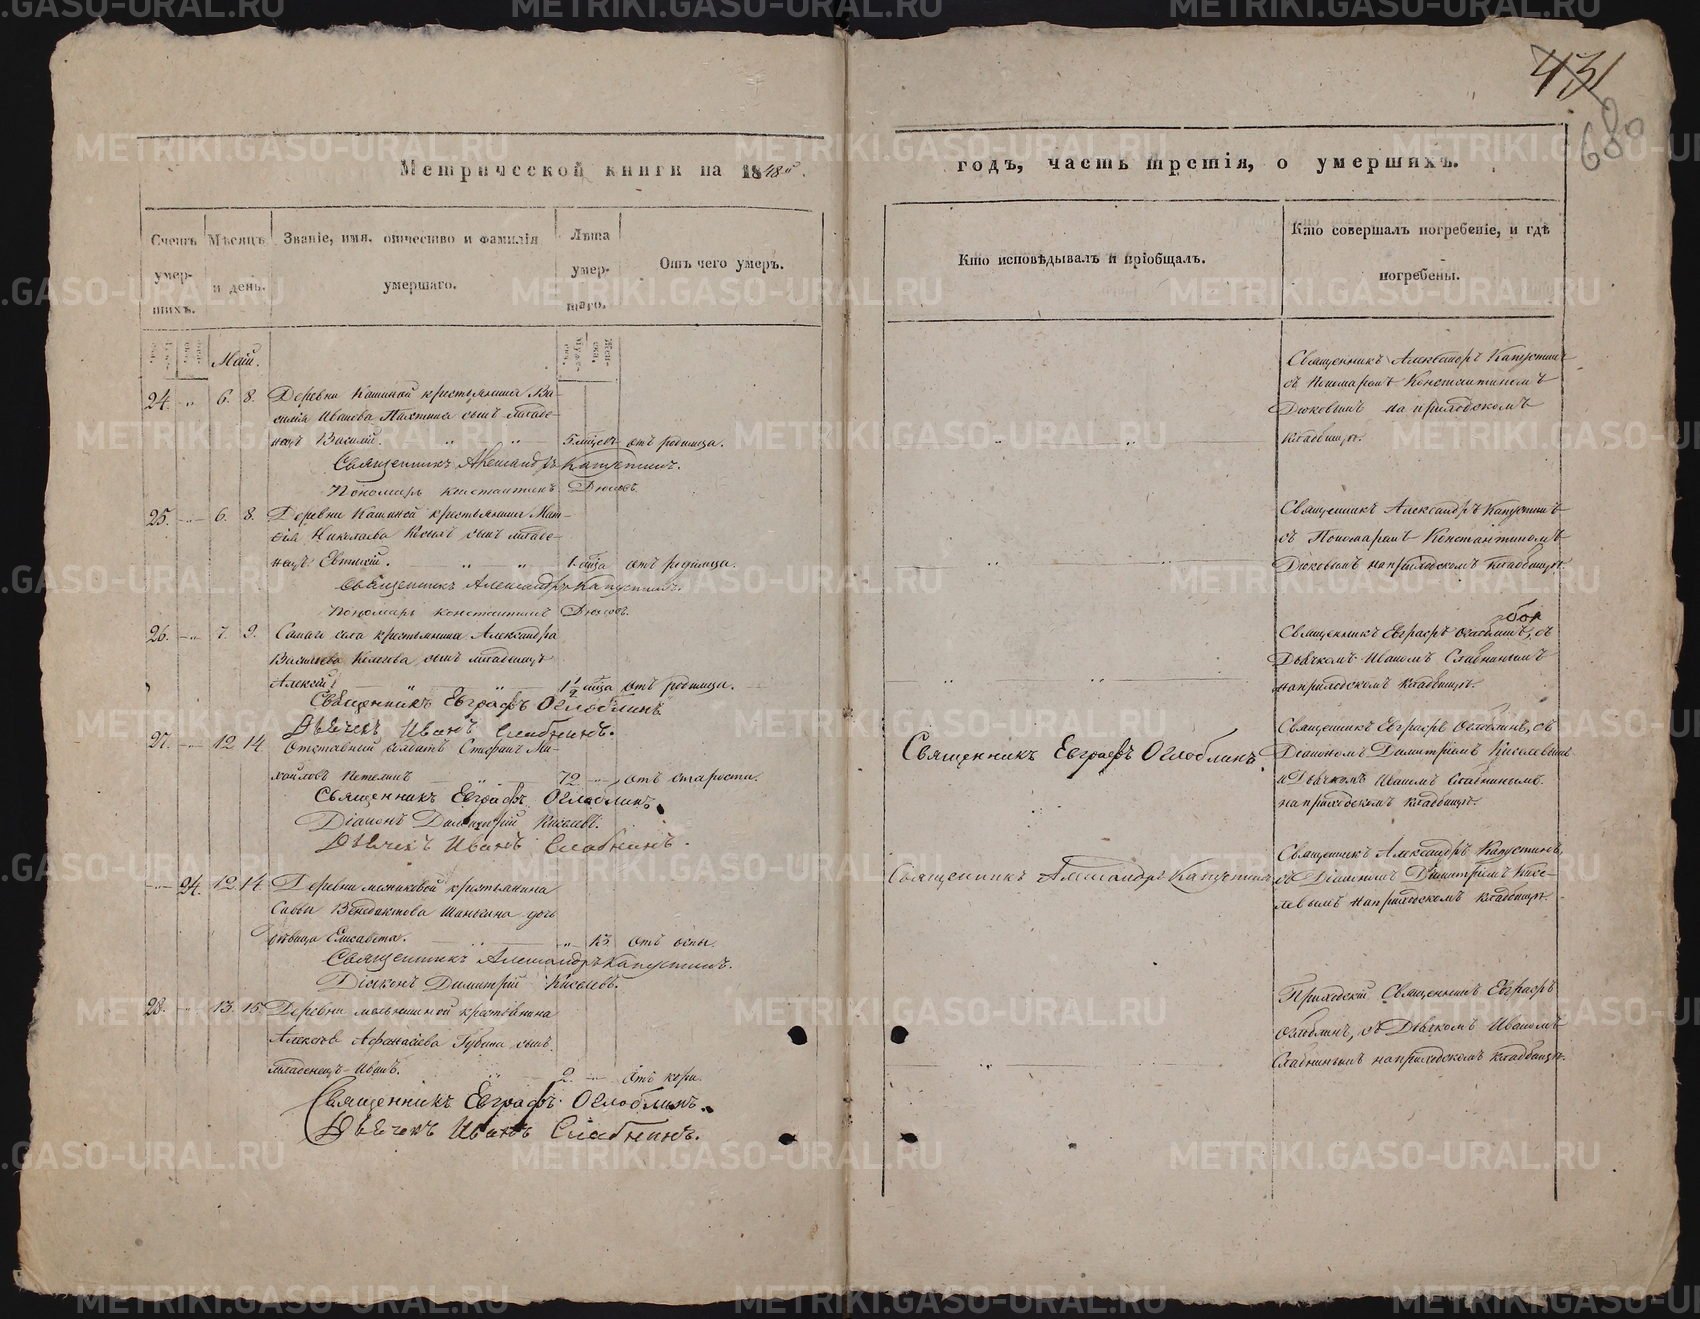 431
680
Метрической книги на 1848й.
годъ, часть третія, о умершихъ.
Счетъ умер-шихъ.
Мѣсяцъ и день.
Званіе, имя, отчество и фамилія умершаго.
Лѣта умер-шаго.
Отъ чего умеръ.
Кто исповѣдывалъ и пріобщалъ.
Кто совершалъ погребеніе, и гдѣ погребены.
Май.
24. „ 6. 8. Деревни Кашиной крестьянина Ва-
силія Иванова Пахтина сынъ младе-
нецъ Василій. 5 мѣсцъ отъ родимца.
Священникъ Александръ Капустинъ.
Пономарь Константинъ Дюковъ.
Священникъ Александръ Капустинъ
съ Пономаремъ Константиномъ
Дюковымъ на приходскомъ
кладбищѣ.
25. 6. 8. Деревни Кашиной крестьянина Мат-
ѳія Николаева сынъ младе-
нецъ Евтихій. 1 мѣца отъ родимца.
Священникъ Александръ Капустинъ.
Пономарь Константинъ Дюковъ.
Священникъ Александръ Капустинъ
съ Пономаремъ Константиномъ
Дюковымъ на приходскомъ кладбищѣ.
26. 7. 9. Самаго села крестьянина Александра
Васильева сынъ младенецъ
Алексій. 1½ мѣца отъ родимца.
Священникъ Евграфъ Оглоблинъ
Дьячекъ Иванъ Слабнинъ.
Священникъ Евграфъ Оглоблинъ, съ
Дьячкомъ Иваномъ Слабнинымъ
на приходскомъ кладбищѣ.
27. 12 14 Отставный солдатъ Стефанъ Ми-
хайловъ Петелинъ 72 отъ старости.
Священникъ Евграфъ Оглоблинъ.
Діаконъ Димитрій Киселевъ.
Дьячекъ Иванъ Слабнинъ.
Священникъ Евграфъ Оглоблинъ.
Священникъ Евграфъ Оглоблинъ, съ
Діакономъ Димитріемъ Киселевымъ
и Дьячкомъ Иваномъ Слабнинымъ
на приходскомъ кладбищѣ.
24. 12 14. Деревни крестьянина
Саввы Венедиктова Шанькина дочь
дѣвица Елисавета. 13 отъ оспы.
Священникъ Александръ Капустинъ.
Діаконъ Димитрій Киселевъ.
Священникъ Александръ Капустинъ
Священникъ Александръ Капустинъ,
съ Діакономъ Димитріемъ Кисе-
левымъ на приходскомъ кладбищѣ.
28. 13. 15. Деревни Мельнишной крестьянина
Алексѣя Афанасіева Губина сынъ
младенецъ Иванъ. 2. отъ кори.
Священникъ Евграфъ Оглоблинъ.
Дьячекъ Иванъ Слабнинъ.
Приходскій Священникъ Евграфъ
Оглоблинъ, съ Дьячкомъ Иваномъ
Слабнинымъ на приходскомъ кладбищѣ.
METRIKI.GASO-URAL.RU